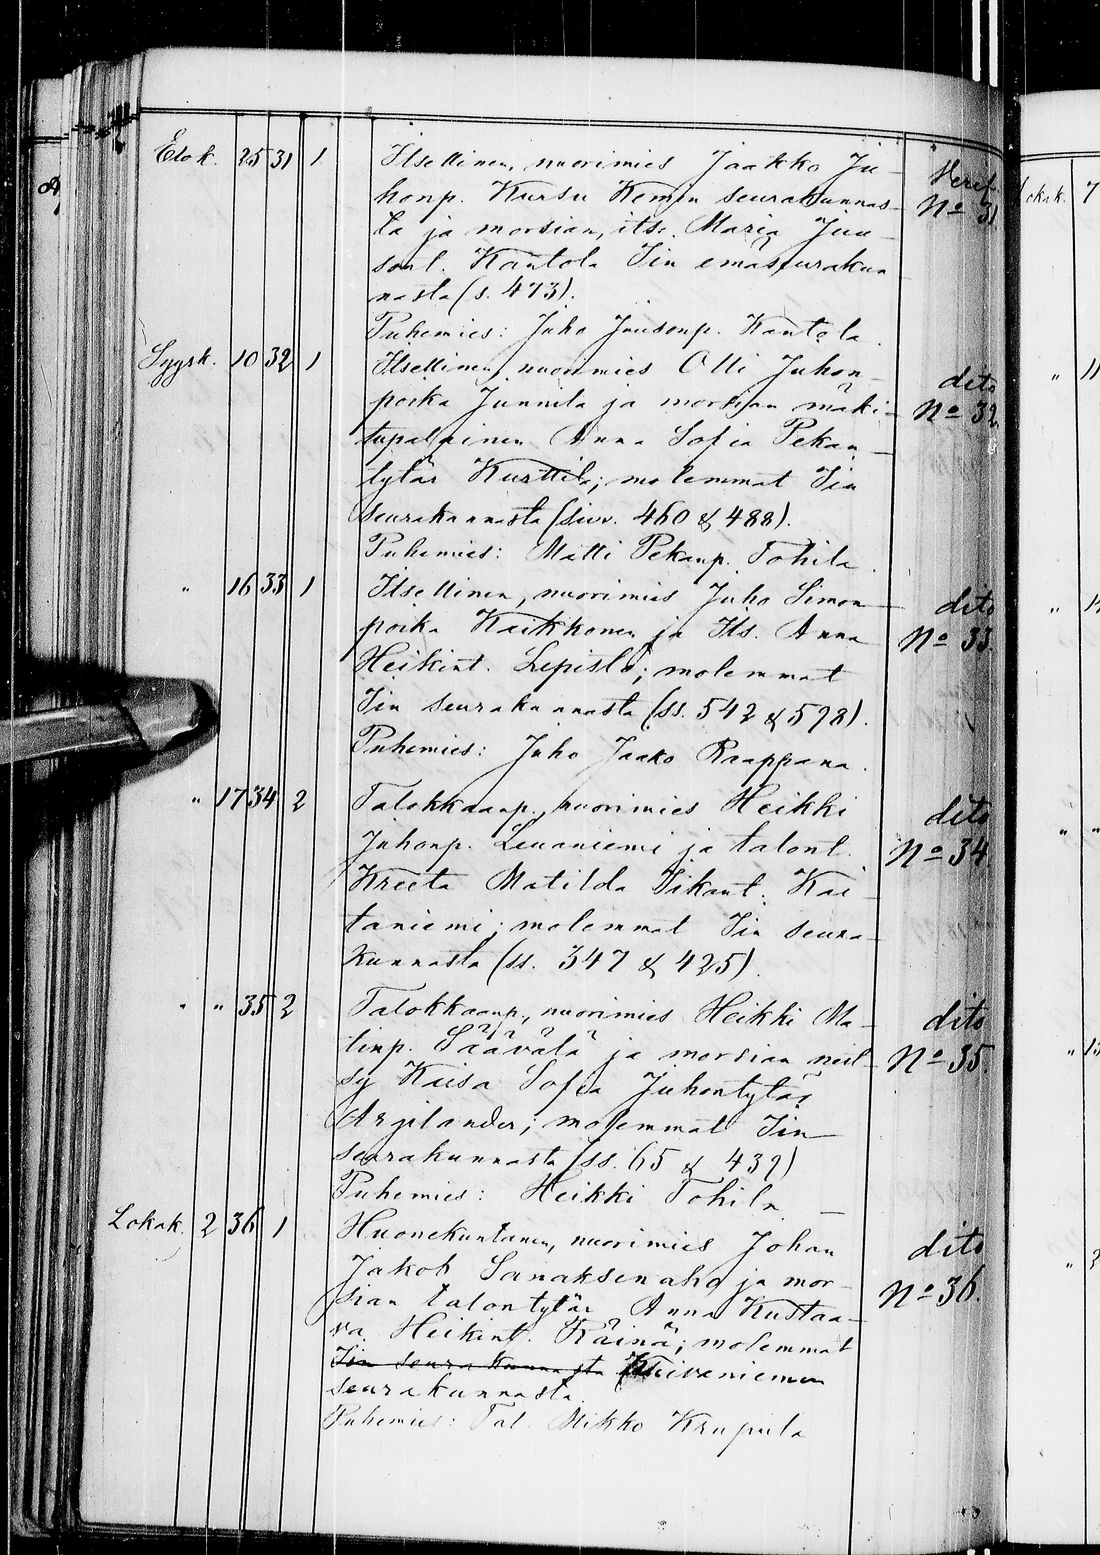 Elok. 25 31 1 Itsellinen, nuorimies Jaakko Ju-
honp. Kursu Kemin seurakunnas-
ta ja morsian, itse. Maria Juu-
sont. Kantola Iin emäseurakun
nasta (s. 473).
Puhemies: Juho Juusonp. Kantola.
N:o 31
Syysk. 10 32 1 Itsellinen, nuorimies Olli Juhon-
poika Junnila ja morsian mäki-
tupalainen Anna Sofia Pekan-
tytär Kurttila; molemmat Iin
seurakunnasta (sivv. 460 & 488).
Puhemies: Matti Pekanp. Tohila.
dito
N:o 32.
" 16 33 1 Itsellinen, nuorimies Juho Simon-
poika Kaikkonen ja Its. Anna
Heikint. Lepistö; molemmat
Iin seurakunnasta (ss. 542 & 578).
Puhemies: Juho Jaako Raappana.
dito
N:o 33.
" 17 34 2 Talokkaanp., nuorimies Heikki
Juhonp. Leuaniemi ja talont.
Kreeta Matilda Iikant. Kai-
taniemi; molemmat Iin seura-
kunnasta (ss. 347 & 425).
dito
N:o 34
" " 35 2 Talokkaanp., nuorimies Heikki Ma-
tinp. Säävälä ja morsian neit-
sy Kaisa Sofia Juhontytär
Arjelander; molemmat Iin
seurakunnasta (ss. 65 & 439)
Puhemies: Heikki Tohila
dito
N:o 35.
Lokak. 2 36 1 Huonekuntanen, nuorimies Johan
Jakob Sanaksenaho ja mor-
sian talontytär Anna Kustaa-
va Heikint. Räinä; molemmat
Iin seurakunnasta Kuivaniemen
seurakunnasta.
Puhemies: Tal. Mikko Krupula
dito
N:o 36.